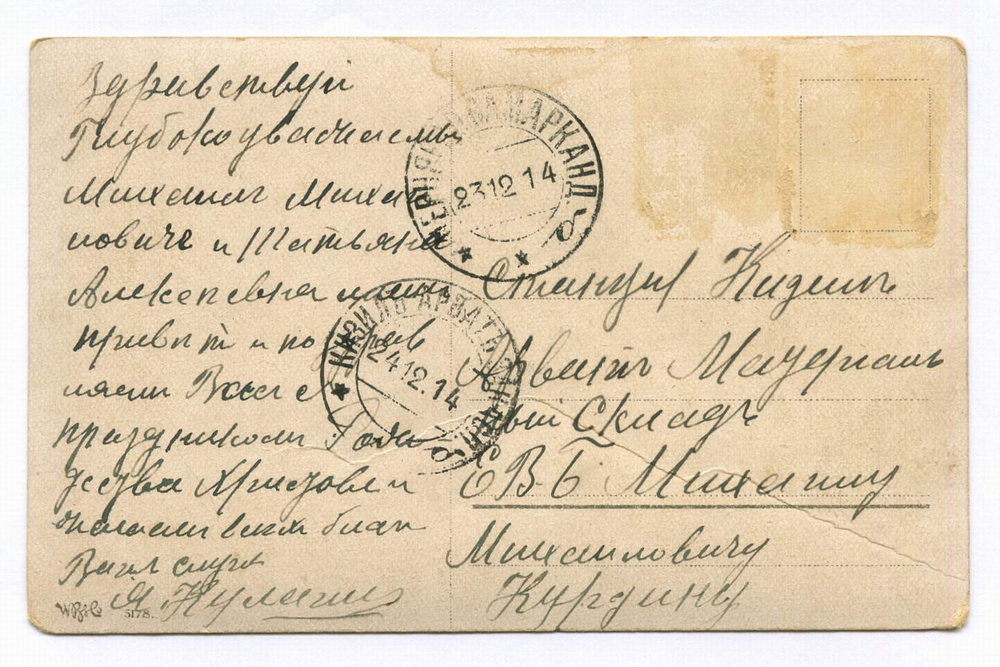 Здравствуй
Глубокоуважаемы
Михаил Михаи
ловиче и Татьяна
Алексеевна шлю
привът и поздрав
ляем Вас с
праздником Рож
дества Христове и
желаем всех благ
Ваш слуга
Я. Кулагин
W.B.&Co
5178.
САМАРКАНД
23 12 14
б
КИЗИЛЪ АРВАТЪ
24 12. 14
б
Станция Кизилъ
Арватъ Матерiаль
ный Складъ
ЕВБ Михаилу
Михаиловичу
Курдину